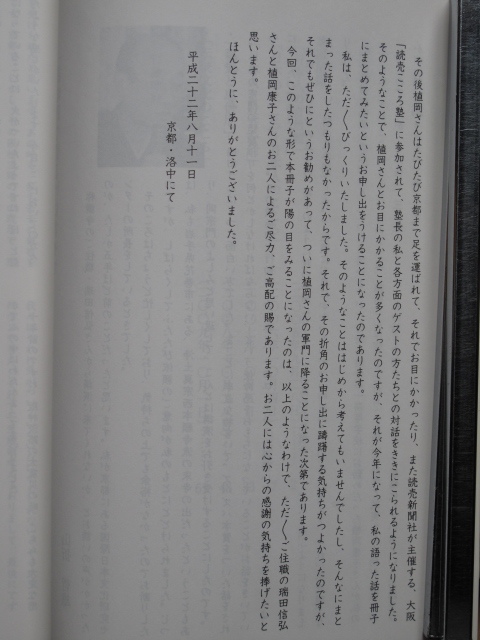 その後植岡さんはたびたび京都まで足を運ばれて、それでお目にかかったり、また読売新聞社が主催する、大阪
「読売こころ塾」に参加されて、塾長の私と各方面のゲストの方たちとの対話をききにこられるようになりました。
そのようなことで、植岡さんとお目にかかることが多くなったのですが、それが今年になって、私の語った話を冊子
にまとめてみたいというお申し出をうけることになったのであります。
私は、ただ〳〵びっくりいたしました。そのようなことははじめから考えてもいませんでしたし、そんなにまと
まった話をしたつもりもなかったからです。それで、その折角のお申し出に躊躇する気持ちがつよかったのですが、
それでもぜひにというお勧めがあって、ついに植岡さんの軍門に降ることになった次第であります。
今回、このような形で本冊子が陽の目をみることになったのは、以上のようなわけで、ただ〳〵ご住職の瑞田信弘
さんと植岡康子さんのお二人によるご尽力、ご高配の賜であります。お二人には心からの感謝の気持ちを捧げたいと
思います。
ほんとうに、ありがとうございました。
平成二十二年八月十一日
京都・洛中にて